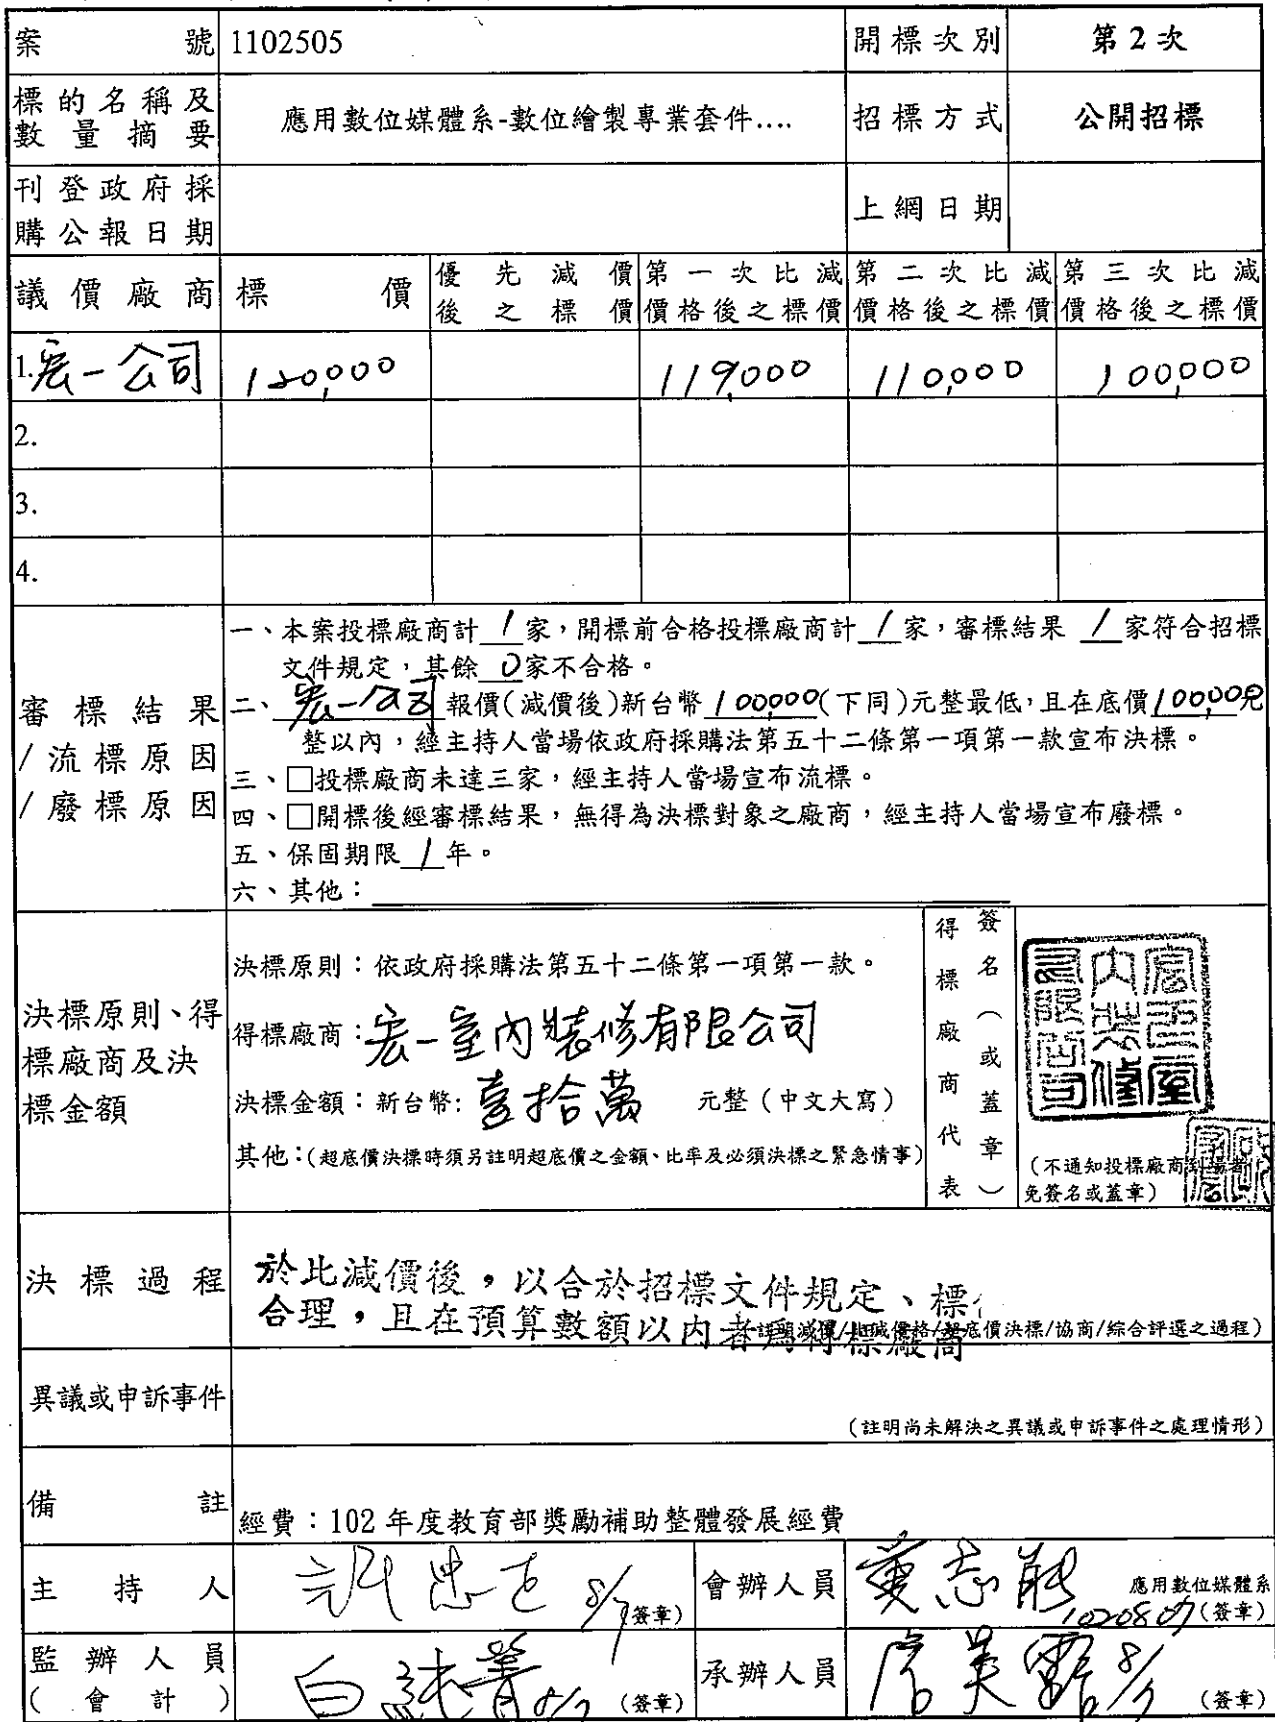 案號 1102505 開標次別 第2次
標的名稱及數量摘要 應用數位媒體系-數位繪製專業套件.... 招標方式 公開招標
刊登政府採購公報日期 上網日期
議價廠商 標價 優先減價後之標價 第一次比減價格後之標價 第二次比減價格後之標價 第三次比減價格後之標價
1.宏一公司 120,000 119,000 110,000 100,000
2.
3.
4.
審標結果/流標原因/廢標原因
一、本案投標廠商計 1 家,開標前合格投標廠商計 1 家,審標結果 1 家符合招標
文件規定,其餘 0 家不合格。
二、宏一公司報價(減價後)新台幣 100,000(下同)元整最低,且在底價100,000元
整以內,經主持人當場依政府採購法第五十二條第一項第一款宣布決標。
三、□投標廠商未達三家,經主持人當場宣布流標。
四、□開標後經審標結果,無得為決標對象之廠商,經主持人當場宣布廢標。
五、保固期限 1 年。
六、其他:
決標原則、得標廠商及決標金額
決標原則:依政府採購法第五十二條第一項第一款。
得標廠商:宏一室內裝修有限公司
決標金額:新台幣:壹拾萬 元整(中文大寫)
其他:(超底價決標時須另註明超底價之金額、比率及必須決標之緊急情事)
得標廠商代表
簽名(或蓋章)
宏一室內裝修有限公司
(不通知投標廠商到場者
免簽名或蓋章)
決標過程
於比減價後,以合於招標文件規定、標
合理,且在預算數額以內者為得標廠商
底價決標/協商/綜合評選之過程)
異議或申訴事件
(註明尚未解決之異議或申訴事件之處理情形)
備註 經費:102年度教育部獎勵補助整體發展經費
主持人 8/7 (簽章) 會辦人員 黃志能 應用數位媒體系 1020807 (簽章)
監辦人員(會計) 白純菁 8/7 (簽章) 承辦人員 美 8/7 (簽章)